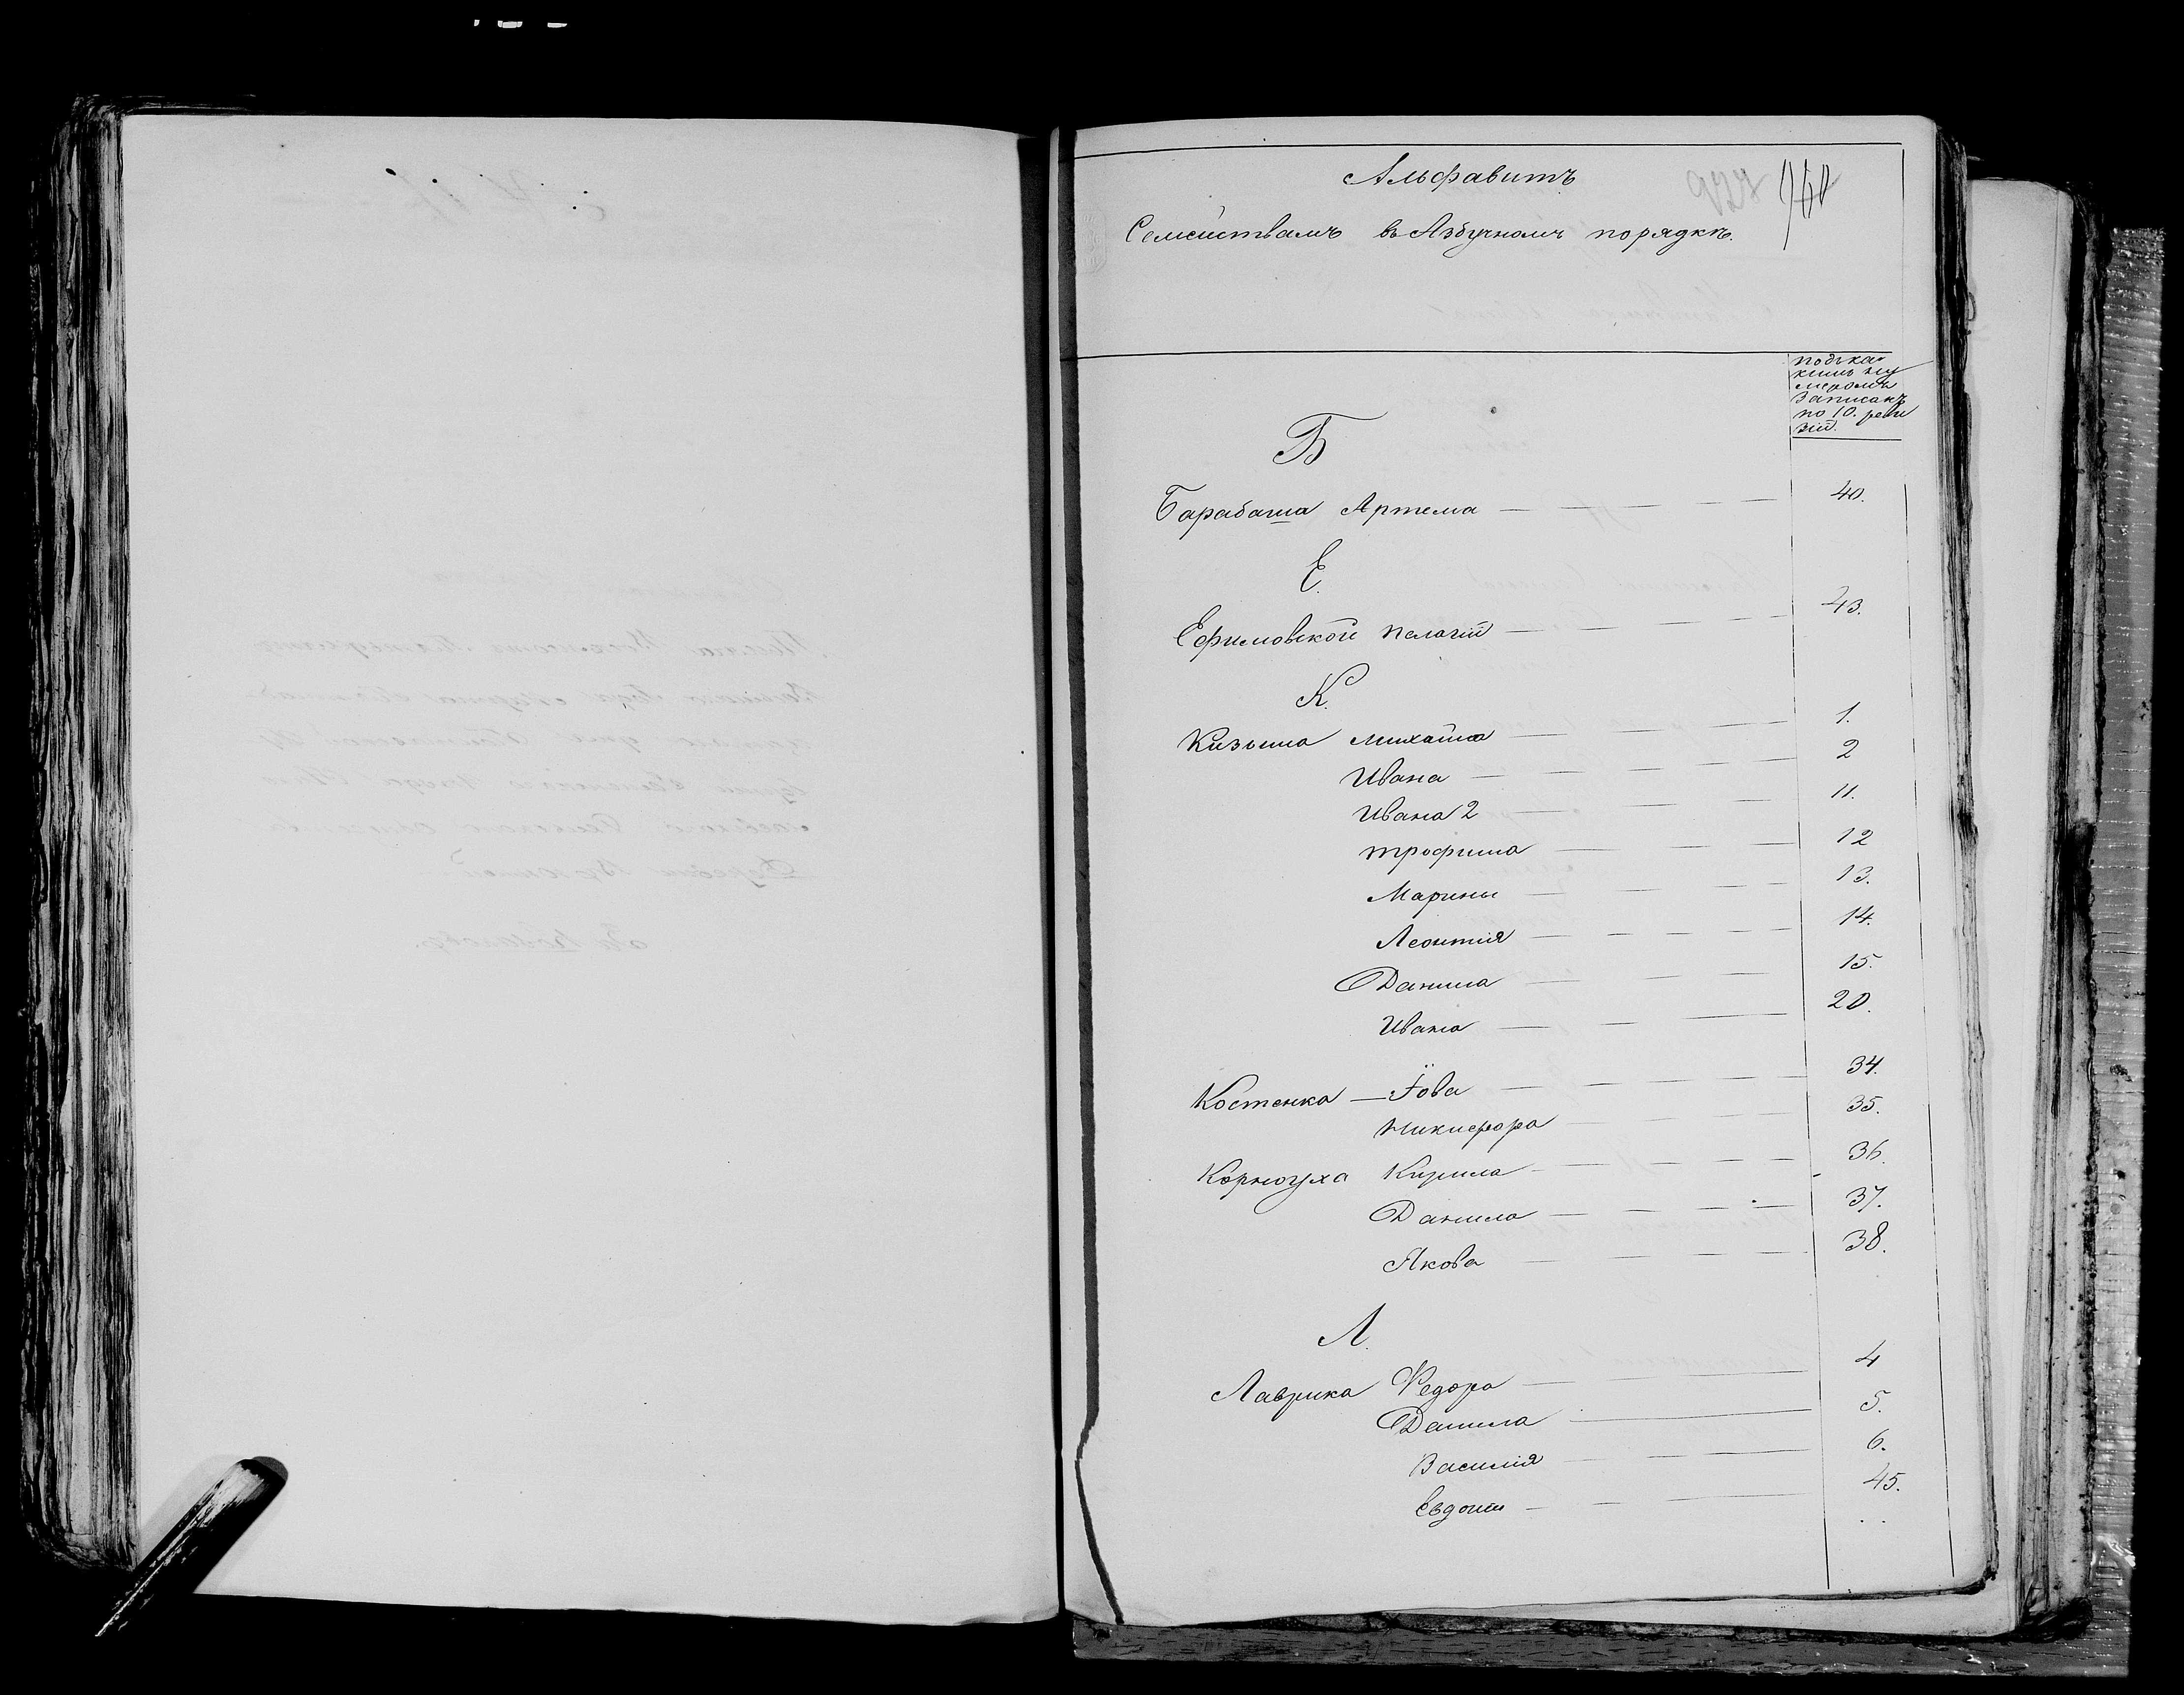 Альфавитъ
Семействамъ въ Азбучномъ порядкѣ.
подъ ка-
кимъ ну
меромъ
Записанъ
по 10. реви
зіи.
Б
Барабаша Артема 40.
Е.
Ефимовской Пелагіи 43.
К.
Кизыма Михайла 1.
Ивана 2
Ивана 2 11.
Трофима 12
Марины 13.
Леонтія 14.
Данила 15.
Ивана 20.
Костенка — Іова 34.
Никифора 35.
Корнюуха Кирила 36.
Данила 37.
Якова 38.
Л.
Лаврика Федора 4
Данила 5.
Василія 6.
Евдокіи 45.